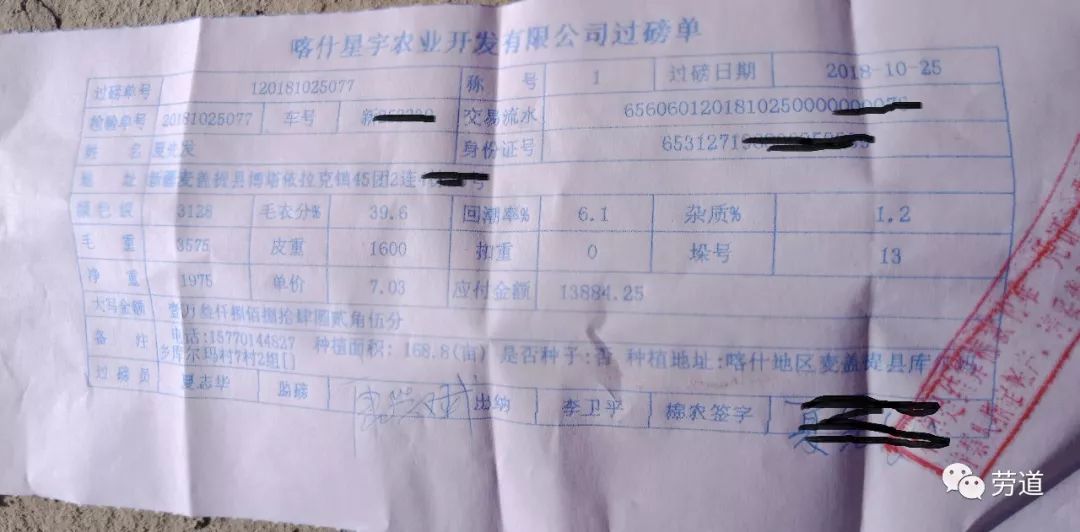 喀什星宇农业开发有限公司过磅单
过磅单号 120181025077 称号 1 过磅日期 2018-10-25
检验单号 20181025077 车号 新 交易流水 6560601201810250000000
姓名 夏先发 身份证号 6531271
地址 新疆麦盖提县博塔依拉克镇45团2连 号
颜色级 3128 毛衣分% 39.6 回潮率% 6.1 杂质% 1.2
毛重 3575 皮重 1600 扣重 0 垛号 13
净重 1975 单价 7.03 应付金额 13884.25
大写金额 壹万叁仟捌佰捌拾肆圆贰角伍分
备注 电话:15770144827 种植面积: 168.8(亩) 是否种子:否 种植地址:喀什地区麦盖提县库尔玛
乡库尔玛村7村2组[]
过磅员 夏志华 监磅 出纳 李卫平 棉农签字
劳道